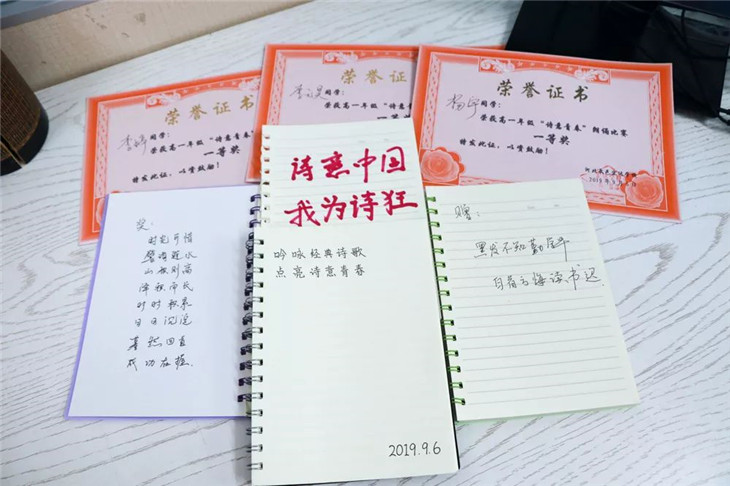 荣誉证书
同学:
荣获高一年级“诗意青春”
一等奖
特发此证,以资鼓励!
荣誉证书
同学:
荣获高一年级“诗意青春”
荣誉证书
同学:
荣获高一年级“诗意青春”朗诵比赛
一等奖
特发此证,以资鼓励!
奖:
时光可惜
譬诸逝水
山积则高
泽积而长
时时积累
日日沉淀
蓦然回首
成功在握.
诗意中国
我为诗狂
吟咏经典诗歌
点亮诗意青春
2019.9.6
赠:
黑发不知勤学早
白首方悔读书迟.